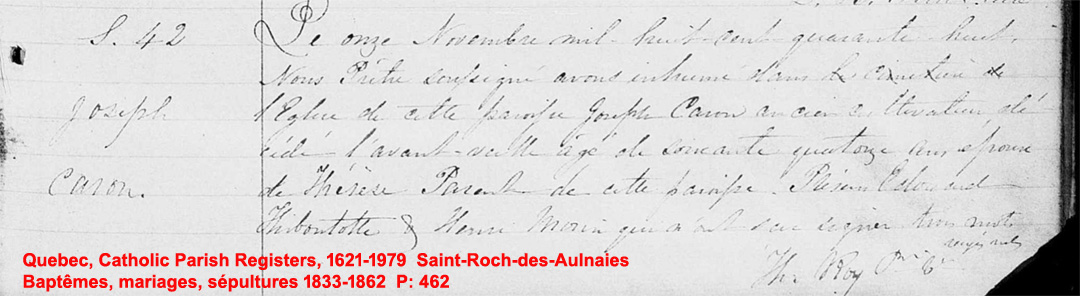 S. 42
Joseph
Caron.
Le onze Novembre mil huit-cent-quarante-huit,
Nous Prêtre soussigné avons inhumé dans le cimetière de
l'Eglise de cette paroisse Joseph Caron ancien cultivateur, dé
cédé l'avant-veille âgé de soixante quatorze ans, époux
de Thérèse Parent de cette paroisse. Présens Edouard
Thiboutotte & Henri Morin qui n'ont su signer trois mots
rayés nuls
Ths Roy Ptre
Quebec, Catholic Parish Registers, 1621-1979 Saint-Roch-des-Aulnaies
Baptêmes, mariages, sépultures 1833-1862 P: 462